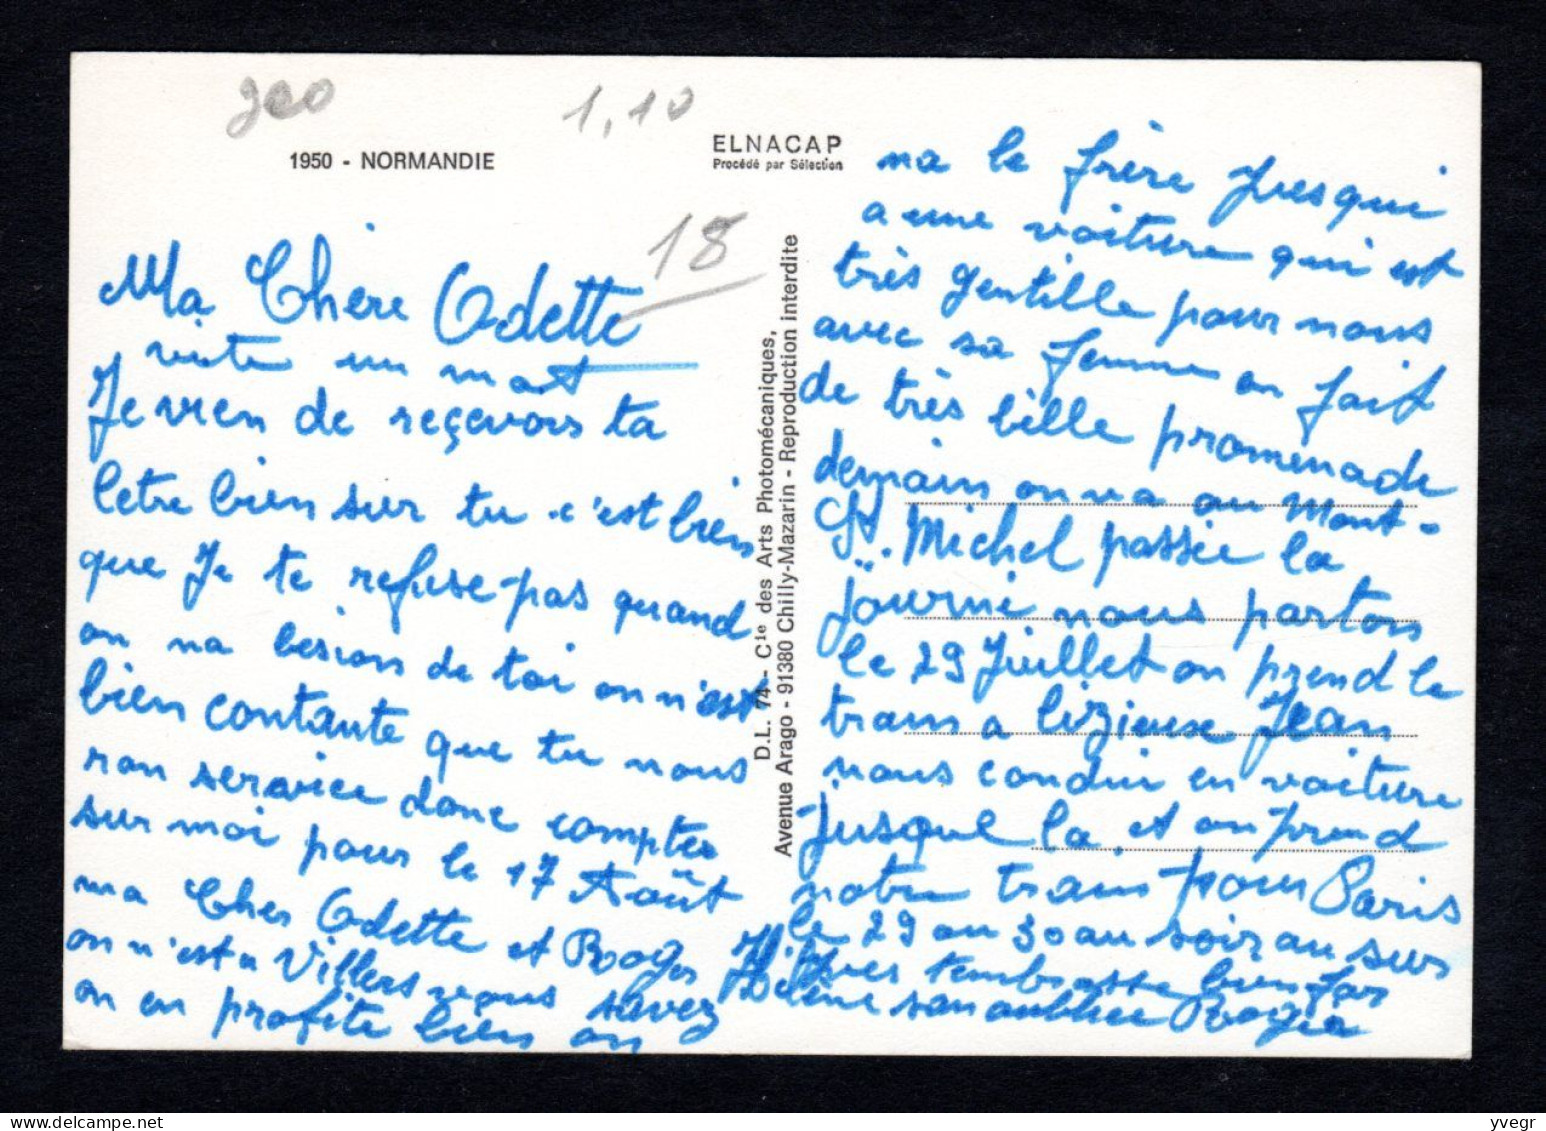 1,10
1950 - NORMANDIE
ELNACAP
Procédé par Sélection
18
Ma Chère Odette
vite un mot
Je vien de reçevois ta
letre bien sur tu c'est bien
que Je te refuse pas quand
on na besion de toi on n'est
bien contante que tu nous
ran service donc compte
sur moi pour le 17 Août
ma Cher Odette et Roger
on n'est a Villers vous savez
on en profite bien on
D.L. 74 - Cie des Arts Photomécaniques,
Avenue Arago - 91380 Chilly-Mazarin - Reproduction interdite
na le frère Jusqui
a une voiture qui est
très gentille pour nous
avec sa femme on fait
de très belle promenade
demain on va au Mont-
St. Michel passée la
journé nous parton
le 29 Juillet on prend le
train a lizieux Jean
nous condui en voiture
jusque la et on prend
notre train pour Paris
le 29 au 30 au soir au sur
tembrasse bien for
Hélène san oublier Roger
yvegr
© delcampe.net